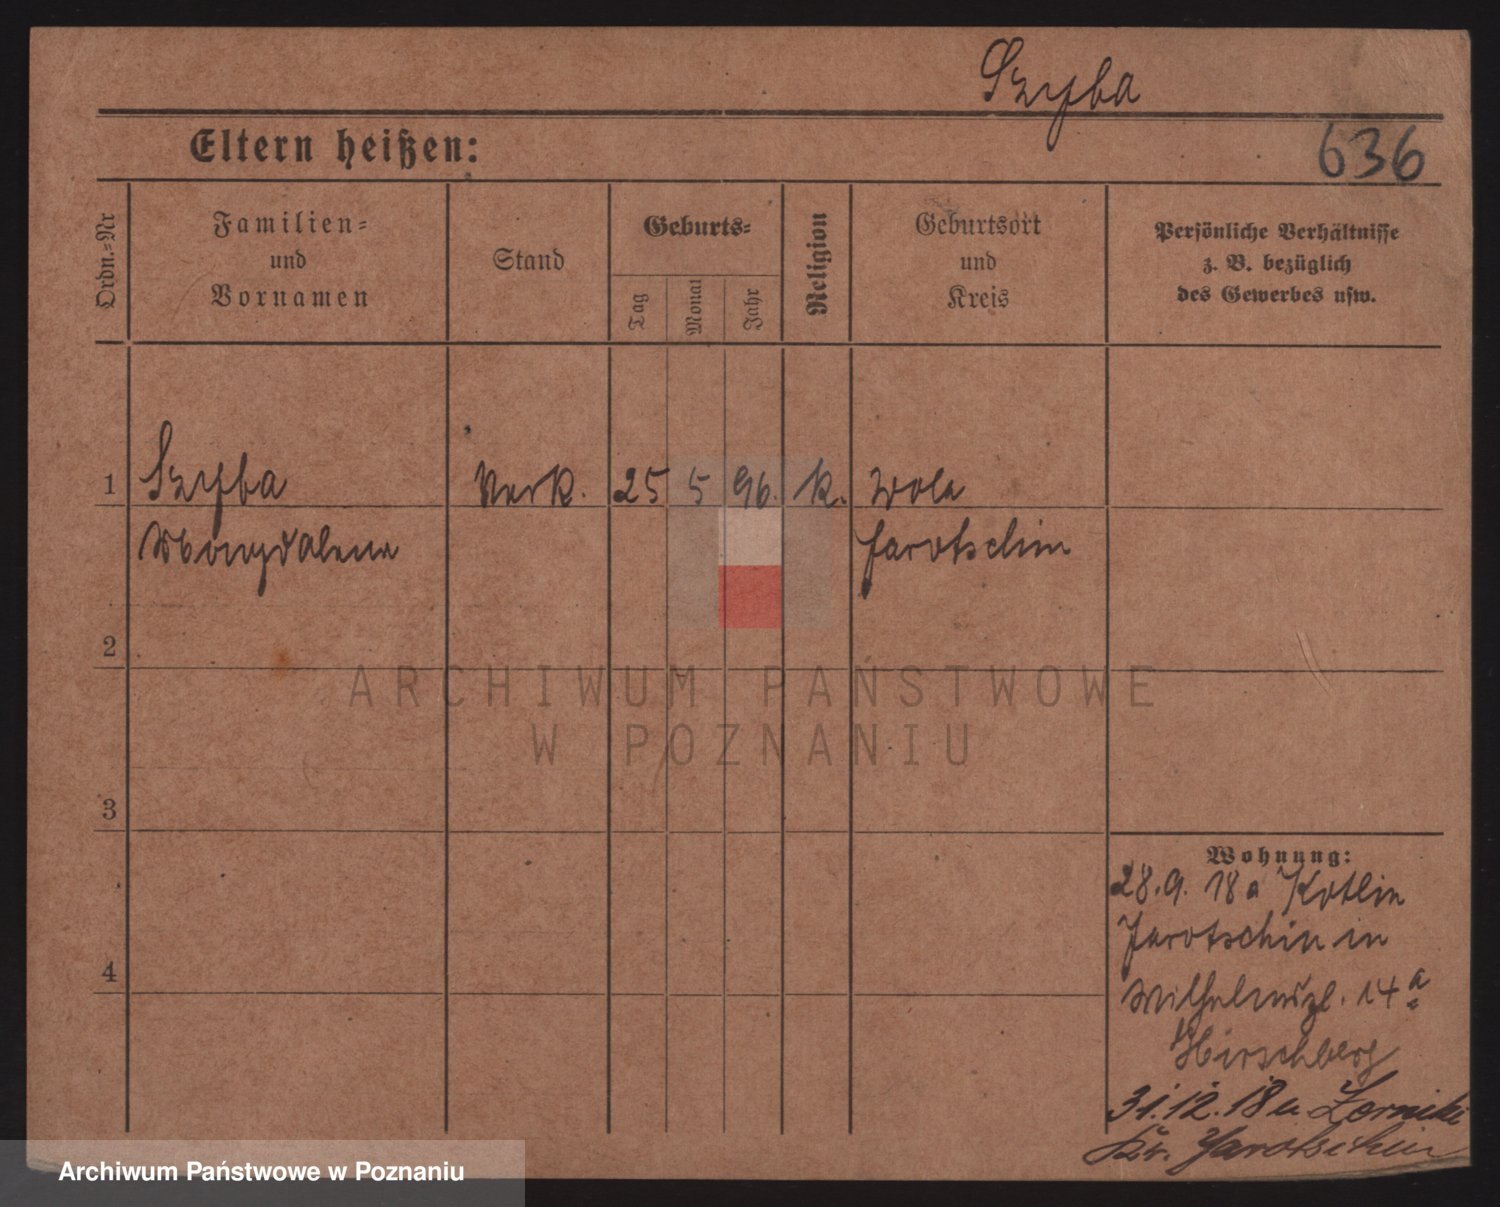 Szyba
636
Eltern heißen:
Ordn.=Nr
Familien=
und
Vornamen
Stand
Geburts=
Tag
Monat
Jahr
Religion
Geburtsort
und
Kreis
Persönliche Verhältnisse
z. B. bezüglich
des Gewerbes usw.
1 Szyba Verk. 25 5 96. k. Wola
Magdalena Jarotschin
2
3
4
Wohnung:
28.9. 18 a Kotlin
Jarotschin in
Wilhelmspl. 14 a
Hirschberg
31.12.18 n.
Kr. Jarotschin
ARCHIWUM PAŃSTWOWE
W POZNANIU
Archiwum Państwowe w Poznaniu